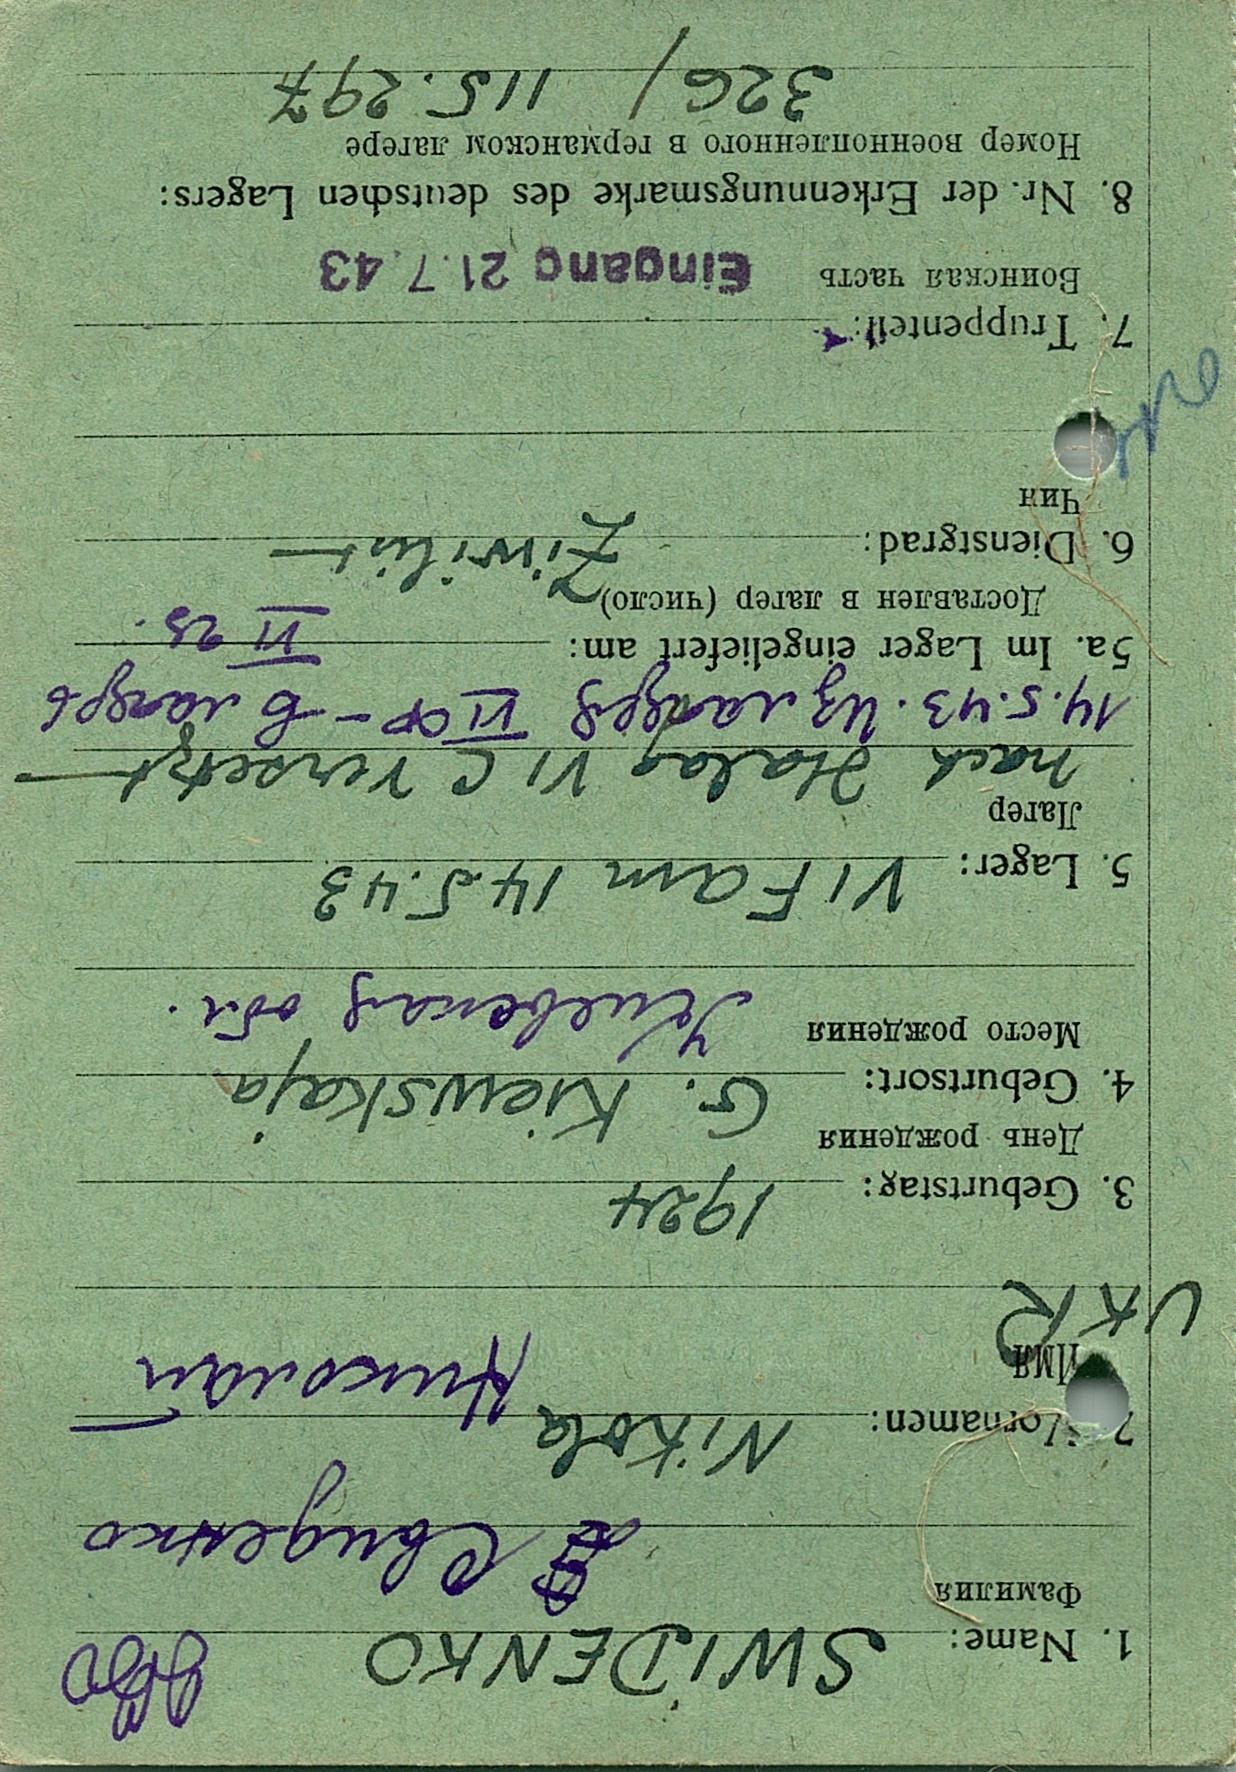 1. Name: SWIDENKO
Фамилия
Свиденко
2. Vornamen: Nikola
Имя Николай
UKR
3. Geburtstag: 1924
День рождения
4. Geburtsort: G. Kiewskaja
Место рождения Киевская обл.
5. Lager: VI F am 14.5.43
Лагерь
nach Stalag VI C versetzt
14.5.43. Из лагеря VI Ф – в лагерь
5a. Im Lager eingeliefert am: VI
Доставлен в лагерь (число)
6. Dienstgrad: Ziwilist
Чин
7. Truppenteil:
Воинская часть Eingang 21.7.43
8. Nr. der Erkennungsmarke des deutschen Lagers:
Номер военнопленного в германском лагере
326/ 115.297